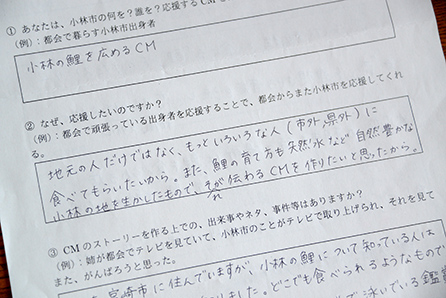 ① あなたは、小林市の何を？誰を？応援するCM
（例）：都会で暮らす小林市出身者
小林の鯉を広めるCM
② なぜ、応援したいのですか？
（例）：都会で頑張っている出身者を応援することで、都会からまた小林市を応援してくれ
る。
地元の人だけではなく、もっといろいろな人（市外、県外）に
食べてもらいたいから。また、鯉の育て方も天然水など自然豊かな
小林の地を生かしたもので、それが伝わるCMを作りたいと思ったから。
③ CMのストーリーを作る上での、出来事やネタ、事件等はありますか？
（例）：姉が都会でテレビを見ていて、小林市のことがテレビで取り上げられ、それを見て
また、がんばろうと思った。
宮崎市に住んでいますが、小林の鯉について知っている人は
りました。どこでも食べられるようなもので
泳いでいる鑑